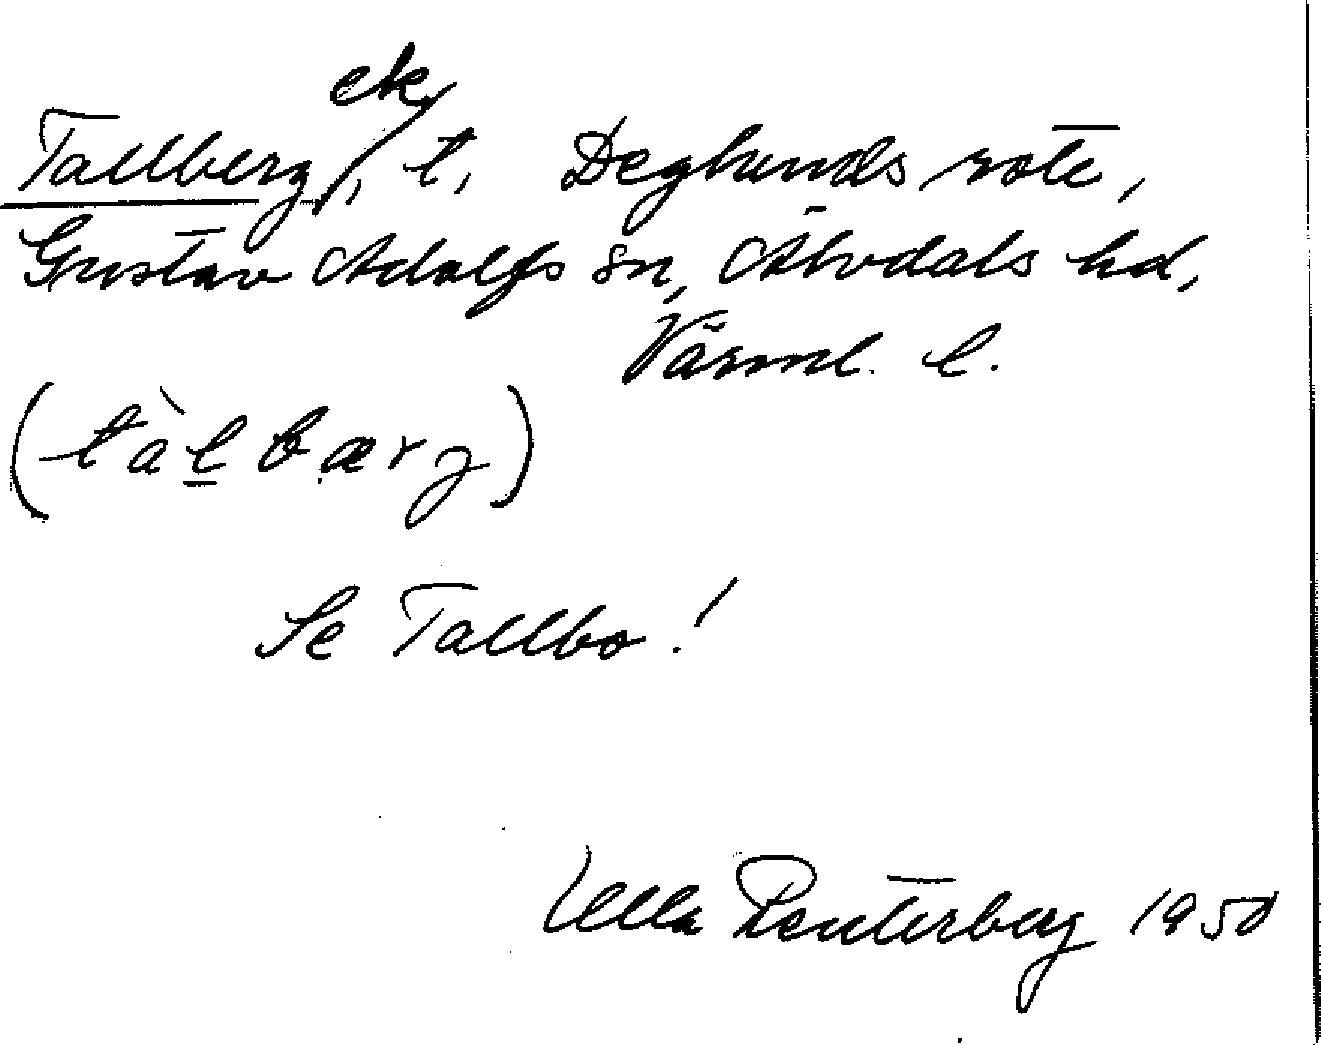 ek
Tallberg, t, Deglunds rote,
Gustav Adolfs sn, Älvdals hd,
Värml. l.
(tàl̲bærj)
Se Tallbo!
Ulla Reuterberg 1950